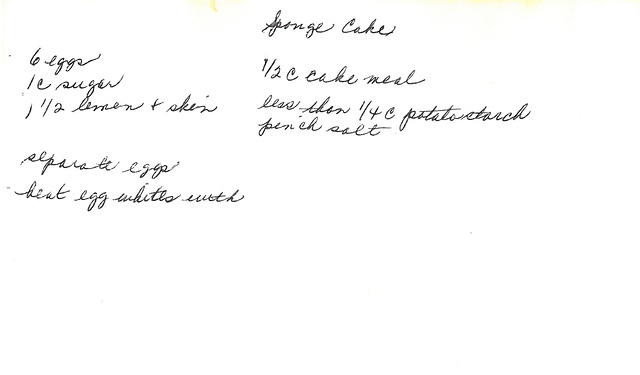 Sponge Cake
6 eggs
1c sugar
1 1/2 lemon + skin
1/2 c cake meal
less than 1/4 c potato starch
pinch salt
separate eggs
beat egg whites with